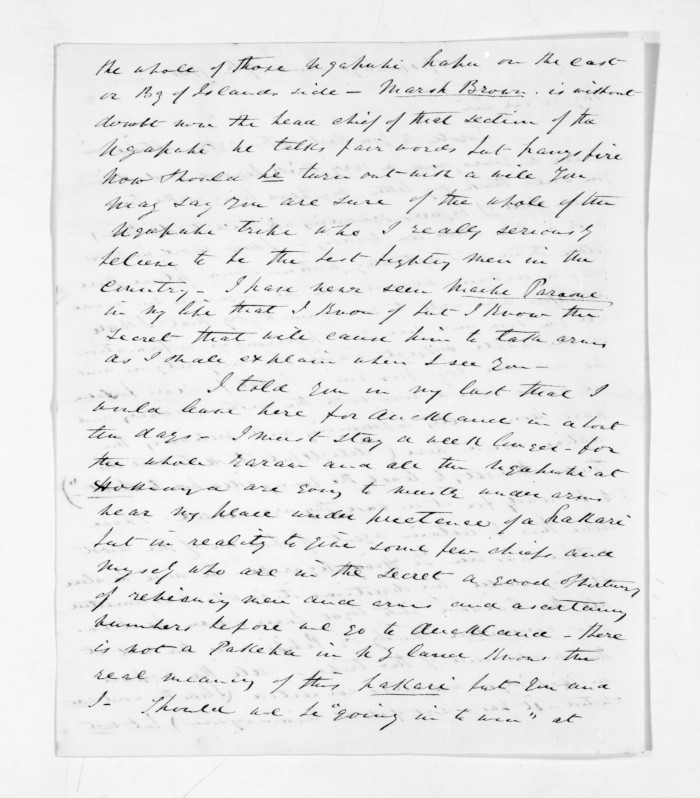 the whole of those Ngapuhi hapu on the east
or By of Islands side – Marsh Brown. is without
doubt now the head chief of that section of the
Ngapuhi he talks fair words but hangs fire
now should he turn out with a will you
may say you are sure of the whole of the
Ngapuhi tribe who I really seriously
believe to be the best fighting men in the
country – I have never seen Maihi Paraone
in my life that I know of but I know the
secret that will cause him to take arms
as I shall explain when I see you –
I told you in my last that I
would leave here for Auckland in about
ten days – I must stay a week longer – for
the whole Rarawa and all the Ngapuhi at
Hokianga are going to muster under arms
near my place under pretence of a hakari
but in reality to give some few chiefs and
myself who are in the secret a good opportunity
of reviewing men and arms and ascertaining
numbers before we go to Auckland – there
is not a Pakeha in N Z land knows the
real meaning of this hakari but you and
I – Should we be "going in to win" at